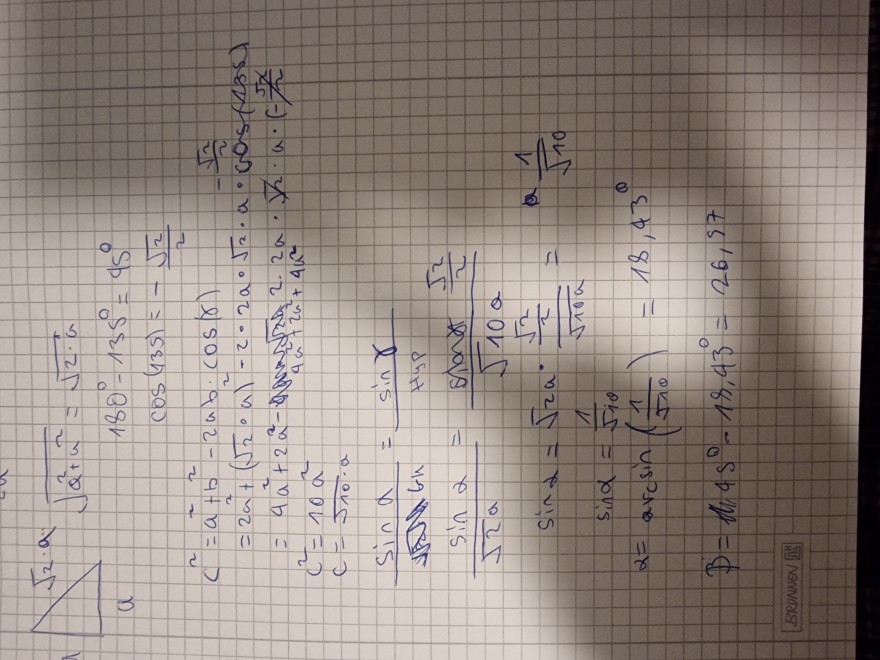 √2·a
a
√a²+a² = √2·a
180° - 135° = 45°
cos(135) = - √2/2
c² = a² + b² - 2ab · cos(γ)
- √2/2
= 2a² + (√2·a)² - 2·2a·√2·a·cos(135)
= 4a² + 2a² - 2·2a·√2·a·(-√2/2)
4a² + 2a² + 4a²
c² = 10a²
c = √10·a
sin α / GK = sin γ / Hyp
sin α / √2a = √2/2 / √10a
sin α = √2a · √2/2 / √10a = 1/√10
sin α = 1/√10
α = arcsin(1/√10) = 18,43°
β = 45° - 18,43° = 26,57
BRUNNEN